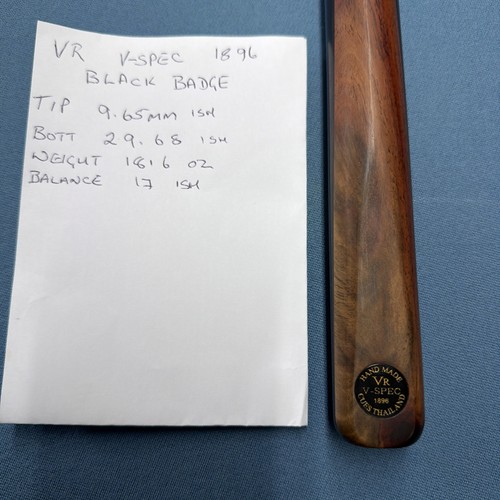 VR V-SPEC 1896
BLACK BADGE
TIP 9.65MM ISH
BOTT 29.68 ISH
WEIGHT 18.6 OZ
BALANCE 17 ISH
HAND MADE
VR
V-SPEC
1896
CUES THAILAND